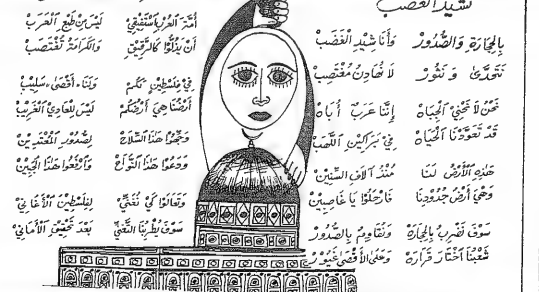 نشيد الغضب
بِالحِجَارَةِ وَالصُّدُورْ وَأَنَاشِيدِ الْغَضَبْ
نَتَحَدَّى وَنَثُورْ لَا نُهَادِنُ مُغْتَصِبْ
نَحْنُ لَا نَحْنِي الْجِبَاهْ إِنَّنَا عَرَبٌ أُبَاهْ
قَدْ تَعَوَّدْنَا الْحَيَاهْ فِي بَرَاكِينِ اللَّهَبْ
هَذِهِ الْأَرْضُ لَنَا مُنْذُ آلَافِ السِّنِينْ
وَهْيَ أَرْضُ جُدُودِنَا فَارْحَلُوا يَا غَاصِبِينْ
سَوْفَ نَضْرِبُ بِالحِجَارَةْ وَنُقَاوِمُ بِالصُّدُورْ
شَعْبُنَا اخْتَارَ قَرَارَهْ وَعَلَى الأَقْصَى غَيُورْ
أُمَّةَ العُرْبِ اسْتَفِيقِي لَيْسَ مِنْ طَبْعِ العَرَبْ
أَنْ يَذِلُّوا كَالرَّقِيقِ وَالكَرَامَةُ تُغْتَصَبْ
فِي فِلَسْطِينَ لَكُمْ وَلَنَا أَقْصَى سَلِيبْ
أَرْضُنَا هِيَ أَرْضُكُمْ لَيْسَ لِلْعَادِي الْغَرِيبْ
وَجِّهُوا هَذَا السِّلَاحْ لِصُدُورِ المُعْتَدِينْ
وَدَعُوا هَذَا النُّوَاحْ وَارْفَعُوا هَذَا الْجَبِينْ
وَتَعَالَوْا كَيْ نُغَنِّي لِفِلَسْطِينَ الأَغَانِي
سَوْفَ يُطْرِبُنَا التَّغَنِّي بَعْدَ تَحْقِيقِ الأَمَانِي